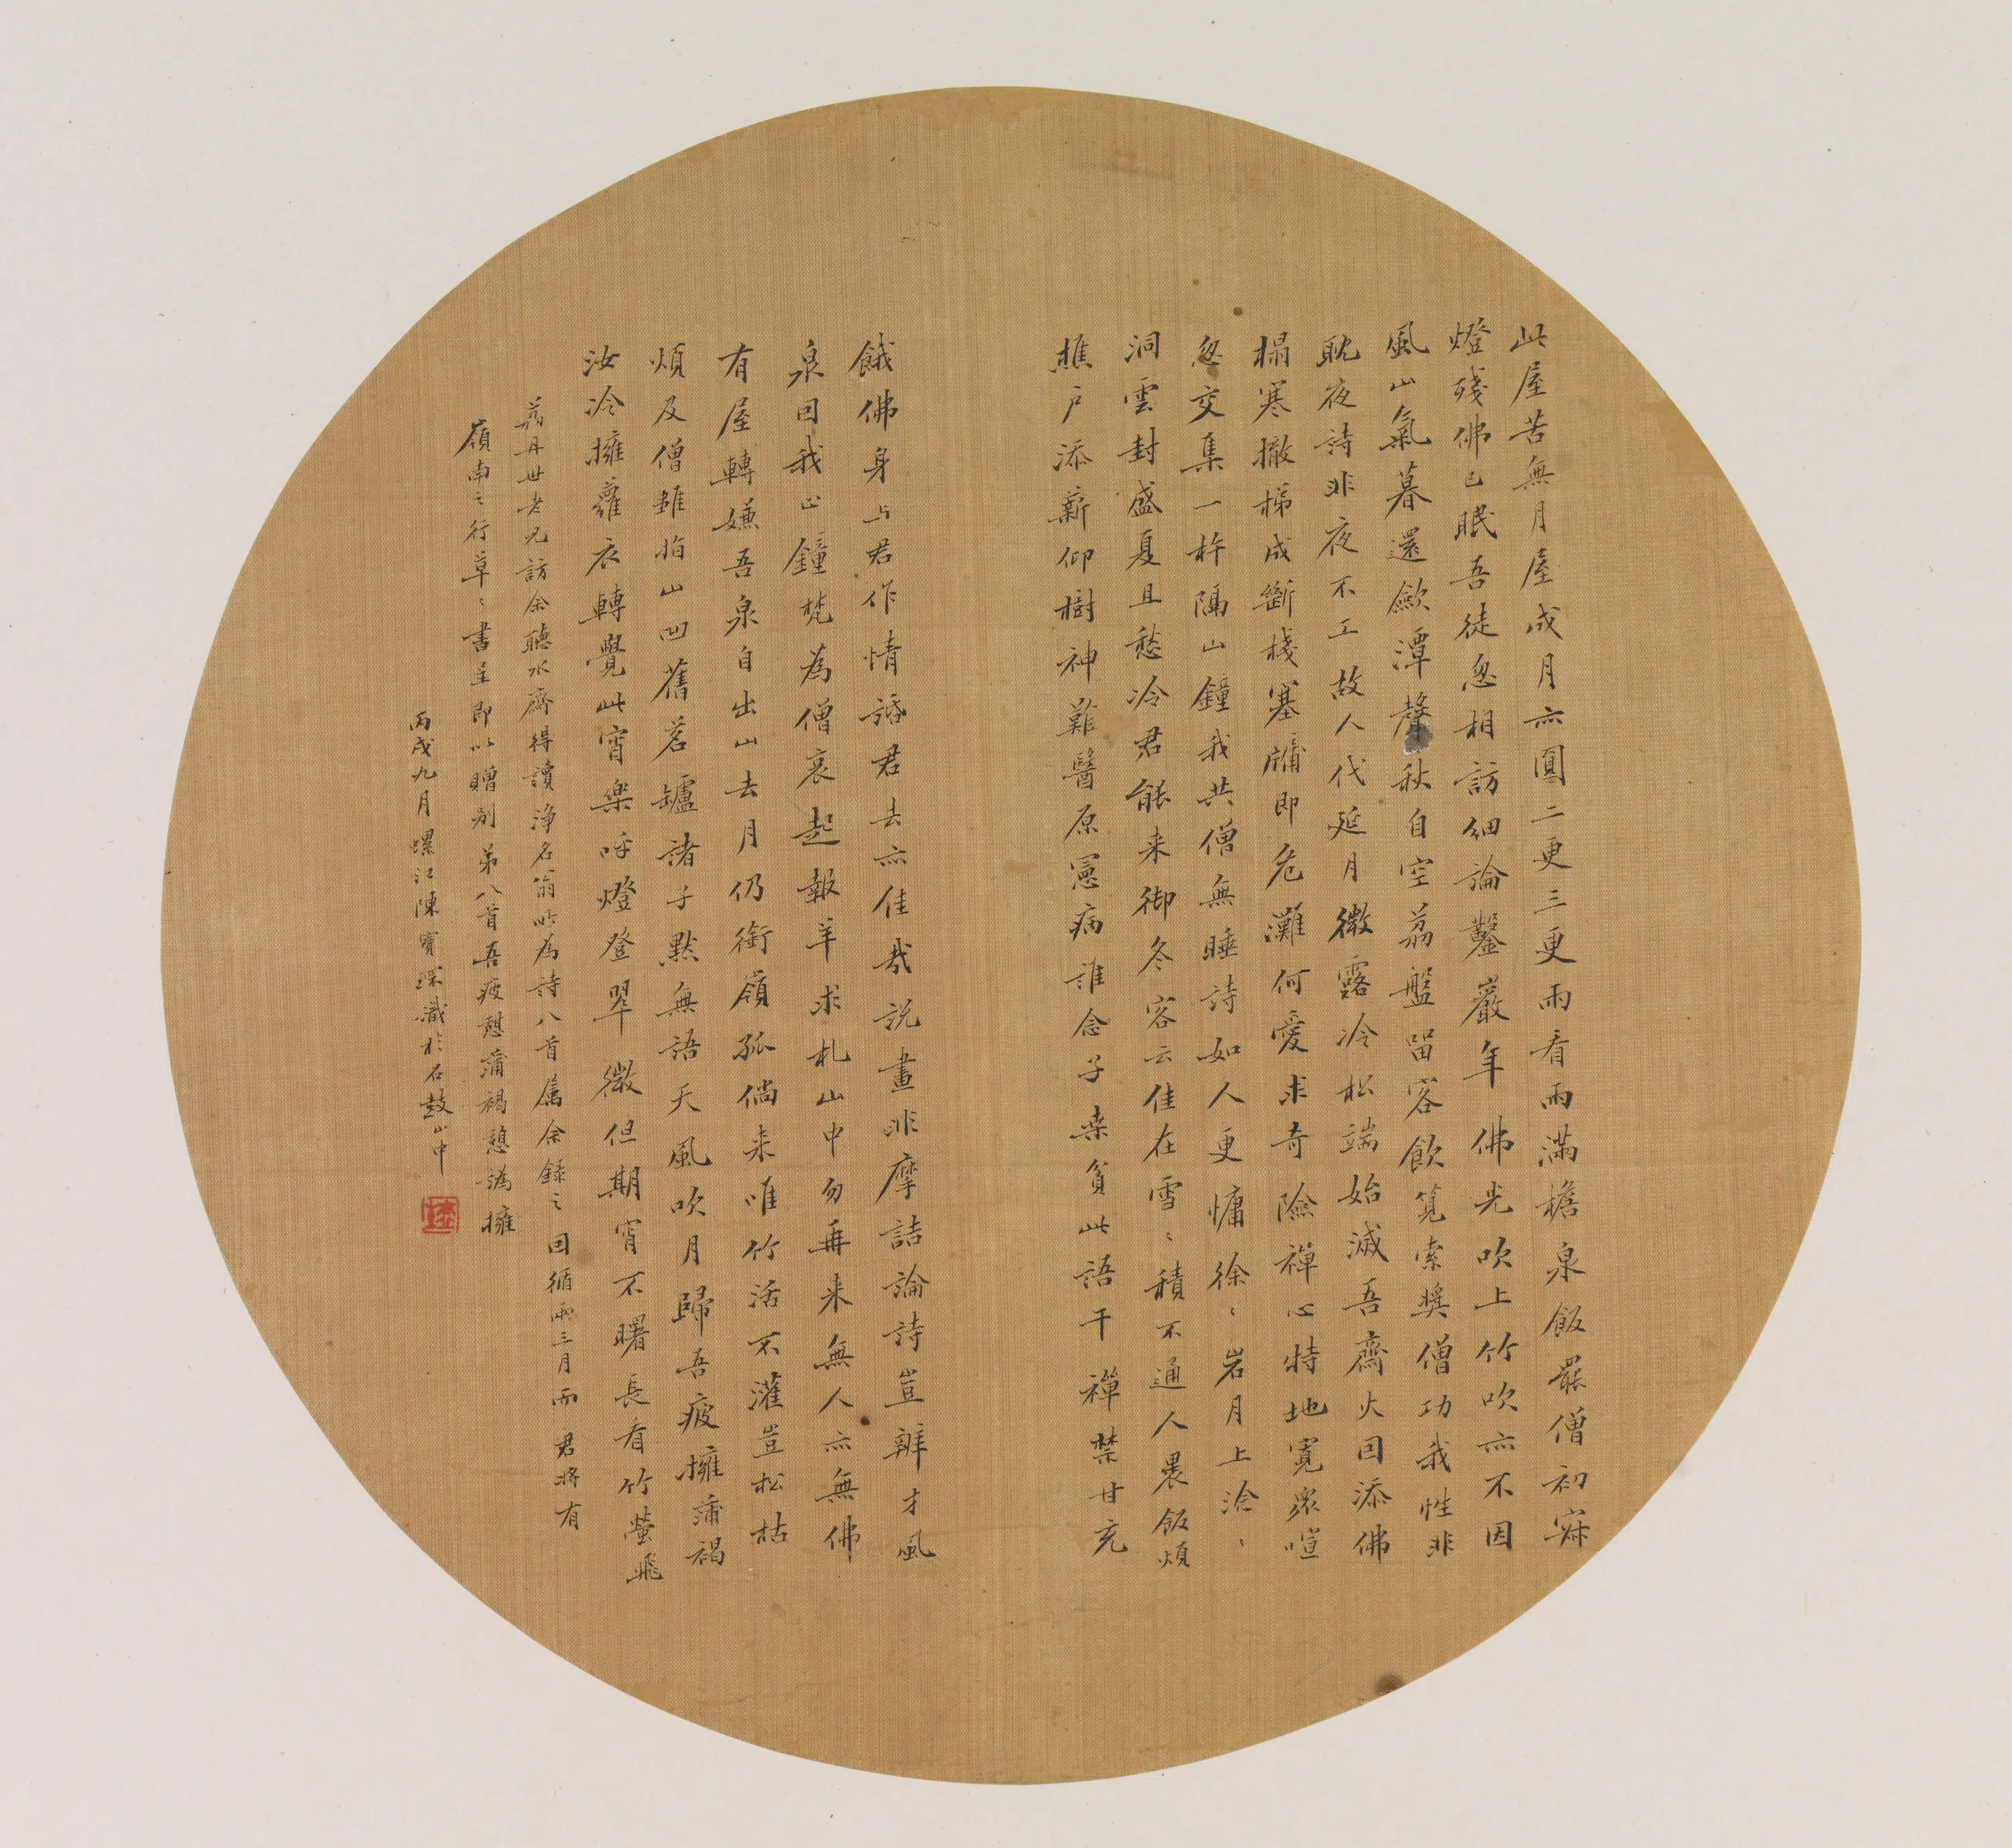 此屋苦無月屋成月亦圓二更三更雨看雨滿檐泉飯罷僧初寐
燈殘佛已眠吾徒忽相訪細論鑿巖年佛光吹上竹吹亦不因
風山氣暮還歛潭聲秋自空荔盤留客飲筧索奬僧功我性非
耽夜詩非夜不工故人代延月微露冷松端始滅吾齋火回添佛
榻寒撤梯成斷棧塞牖即危灘何愛求奇險禪心特地寬衆喧
忽交集一杵隔山鐘我共僧無睡詩如人更慵徐〻岩月上澹〻
洞雲封盛夏且愁冷君能来御冬客云佳在雪〻積不通人晨飯煩
樵戶添薪仰樹神難醫原憲病誰念子桒貧此語干禪禁甘充
餓佛身与君作情話君去亦佳哉説畫非摩詰論詩豈辨才風
泉回我止鐘梵為僧哀起報羊求札山中勿再来無人亦無佛
有屋轉嫌吾泉自出山去月仍銜嶺孤倘来唯竹活不灌豈松枯
煩及僧雖怕山凹舊茗壚諸子默無語天風吹月歸吾疲擁蒲褐
汝冷擁蘿衣轉覺此宵樂呼燈登翠微但期宵不曙長看竹螢飛
荔丹世老兄訪余聽水齋得讀淨名翁所為詩八首属余録之回循兩三月而君將有
嶺南之行草〻書呈即以贈别弟八首吾疲慰蒲褐憩譌擁
丙戌九月螺江陳寶琛識於石鼓山中